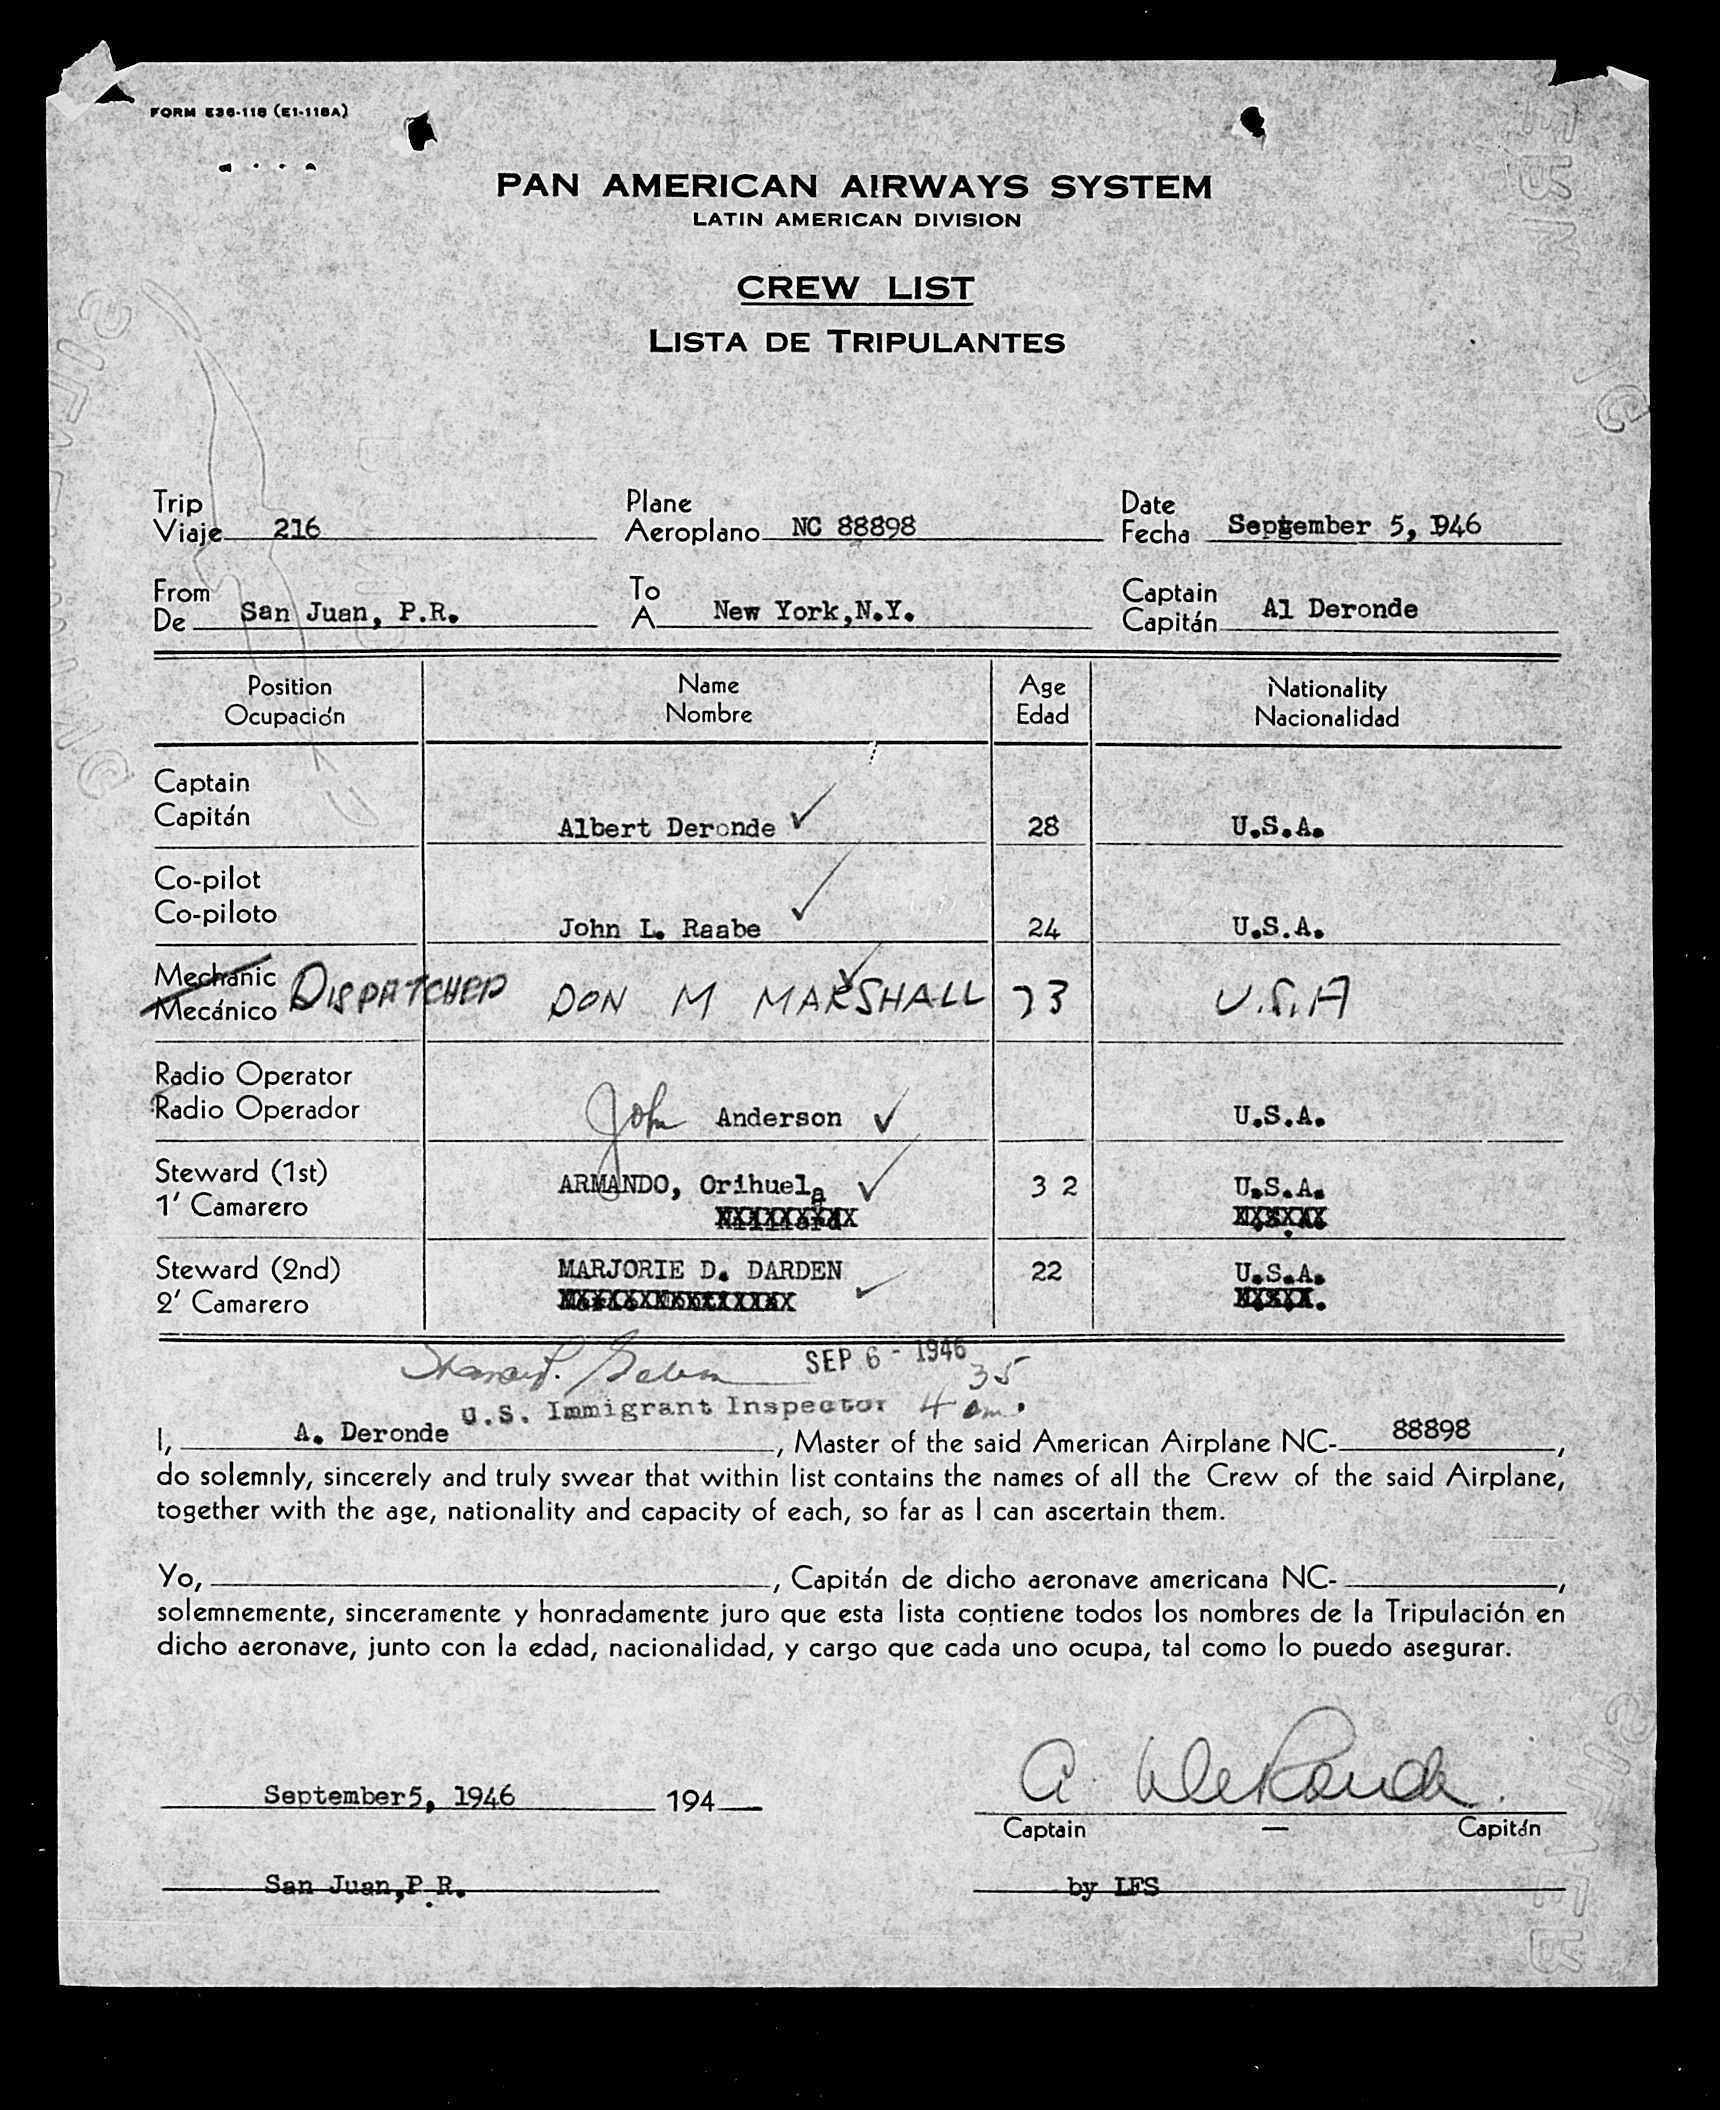 FORM E36-118 (E1-118A)
PAN AMERICAN AIRWAYS SYSTEM
LATIN AMERICAN DIVISION
CREW LIST
LISTA DE TRIPULANTES
Trip Plane Date
Viaje 216 Aeroplano NC 88898 Fecha September 5, 1946
From To Captain
De San Juan, P.R. A New York,N.Y. Capitán Al Deronde
Position Name Age Nationality
Ocupación Nombre Edad Nacionalidad
Captain
Capitán Albert Deronde 28 U.S.A.
Co-pilot
Co-piloto John L. Raabe 24 U.S.A.
Mechanic
Mecánico DISPATCHER DON M MARSHALL 23 U.S.A
Radio Operator
Radio Operador John Anderson U.S.A.
Steward (1st) ARMANDO, Orihuela 3 2 U.S.A.
1' Camarero
Steward (2nd) MARJORIE D. DARDEN 22 U.S.A.
2' Camarero
SEP 6 - 1946
U.S. Immigrant Inspector 4 35 am.
I, A. Deronde, Master of the said American Airplane NC-88898,
do solemnly, sincerely and truly swear that within list contains the names of all the Crew of the said Airplane,
together with the age, nationality and capacity of each, so far as I can ascertain them.
Yo, , Capitán de dicho aeronave americana NC- ,
solemnemente, sinceramente y honradamente juro que esta lista contiene todos los nombres de la Tripulación en
dicho aeronave, junto con la edad, nacionalidad, y cargo que cada uno ocupa, tal como lo puedo asegurar.
A. DeRonde
September5, 1946 194
Captain — Capitán
San Juan,P.R. by LFS